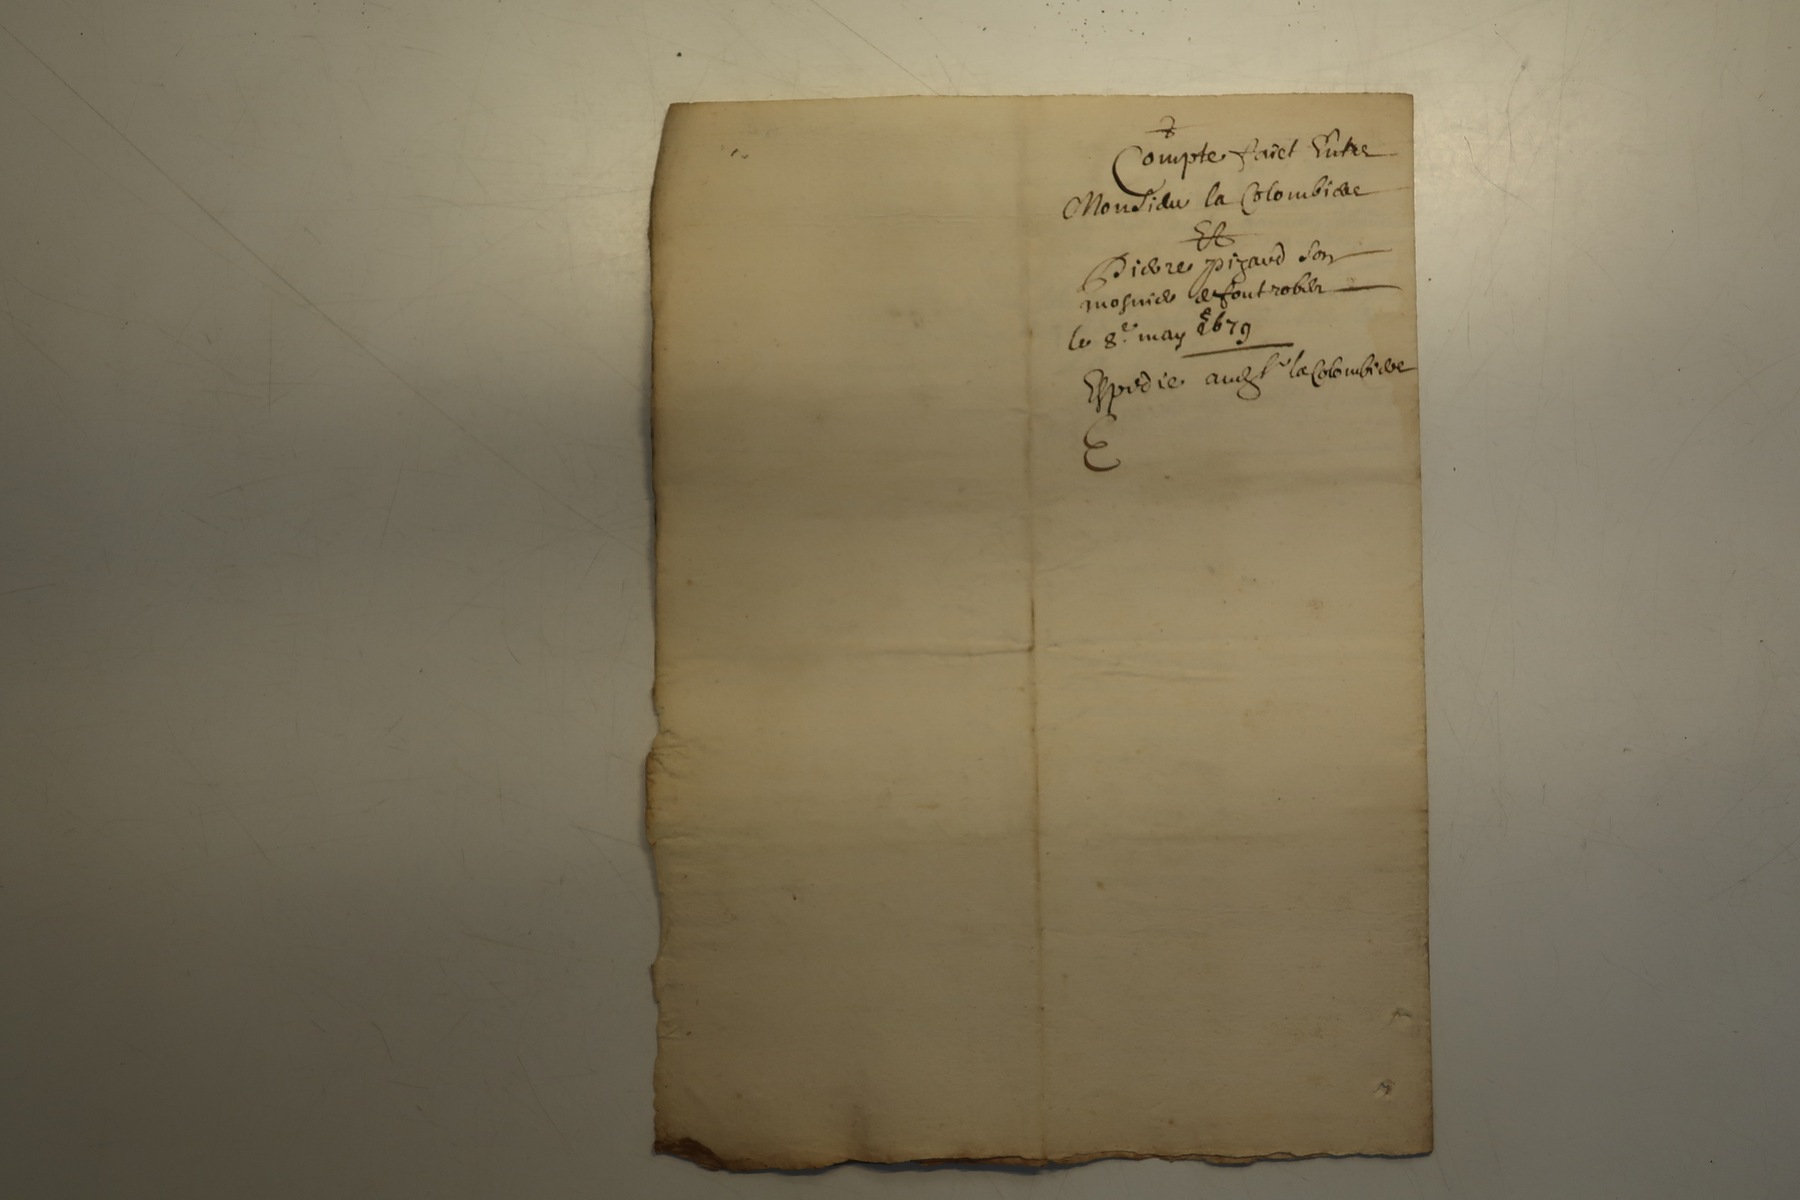 Compte faict Entre
Monsieur la Colombiere
Et
Pierre pizard son
mosnier de fontrober
le 8e may 1679
Expedie audt sr la Colombiere
E